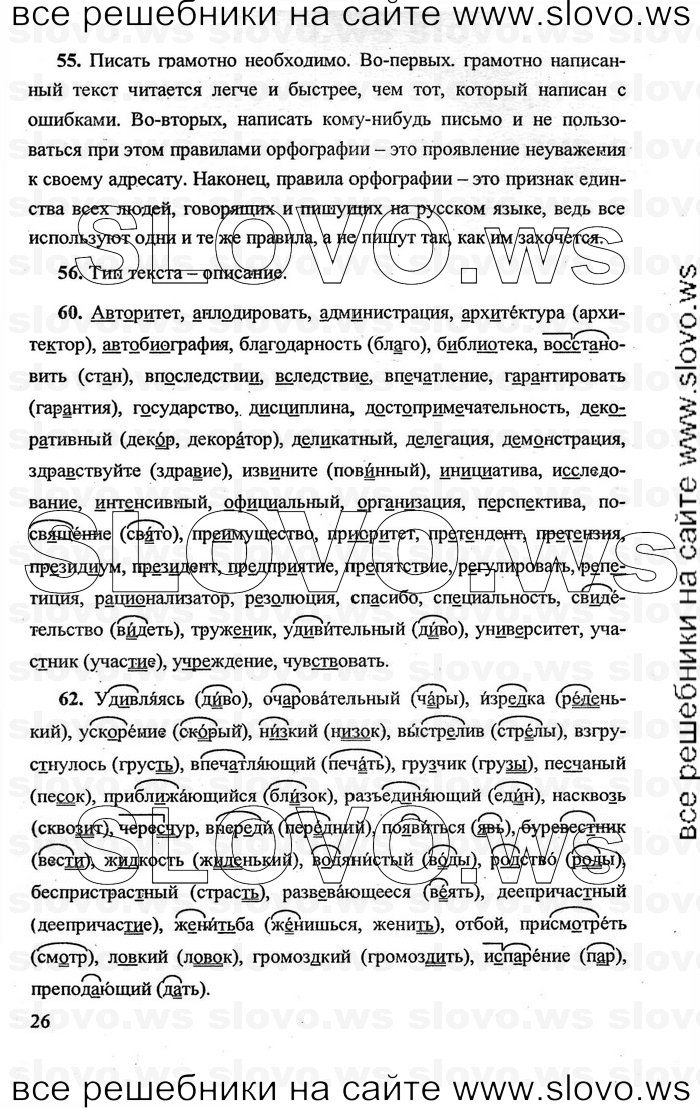 все решебники на сайте www.slovo.ws
55. Писать грамотно необходимо. Во-первых. грамотно написан-
ный текст читается легче и быстрее, чем тот, который написан с
ошибками. Во-вторых, написать кому-нибудь письмо и не пользо-
ваться при этом правилами орфографии – это проявление неуважения
к своему адресату. Наконец, правила орфографии – это признак един-
ства всех людей, говорящих и пишущих на русском языке, ведь все
используют одни и те же правила, а не пишут так, как им захочется.
SLOVO.ws
56. Тип текста – описание.
60. Авторитет, аплодировать, администрация, архитéктура (архи-
тектор), автобиография, благодарность (благо), библиотека, восстано-
вить (стан), впоследствии, вследствие, впечатление, гарантировать
(гарантия), государство, дисциплина, достопримечательность, деко-
ративный (декóр, декорáтор), деликатный, делегация, демонстрация,
здравствуйте (здравие), извините (повúнный), инициатива, исследо-
вание, интенсивный, официальный, организация, перспектива, по-
свящéние (свя́то), преимущество, приоритет, претендент, претензия,
SLOVO.ws
президиум, президент, предприятие, препятствие, регулировать, репе-
тиция, рационализатор, резолюция, спасибо, специальность, свидé-
тельство (вúдеть), труженик, удивúтельный (дúво), университет, уча-
стник (участие), учреждение, чувствовать.
62. Удивляясь (дúво), очаровáтельный (чáры), úзредка (рéдень-
кий), ускорéние (скóрый), нúзкий (низок), вы́стрелив (стрéлы), взгру-
стнулось (грусть), впечатля́ющий (печáть), грузчик (грузы), песчаный
(песок), приближáющийся (блúзок), разъединя́ющий (едúн), насквозь
(сквозит), чересчур, впередú (перéдний), появúться (явь), буревестник
SLOVO.ws
(вести), жидкость (жиденький), водянúстый (вóды), родствó (роды),
беспристрастный (страсть), развевáющееся (вéять), деепричастный
(деепричастие), женúтьба (жéнишься, женить), отбой, присмотрéть
(смотр), ловкий (ловок), громоздкий (громоздить), испарéние (пар),
преподаю́щий (дать).
26
все решебники на сайте www.slovo.ws
все решебники на сайте www.slovo.ws